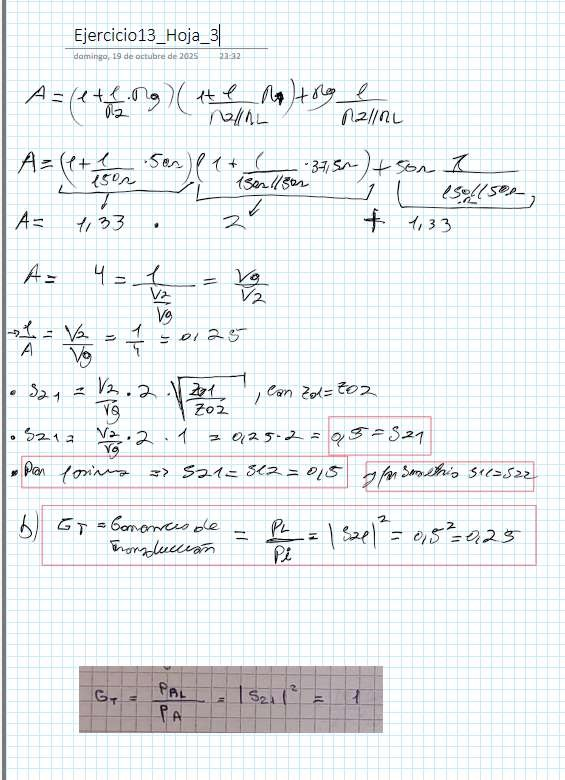 Ejercicio13_Hoja_3
domingo, 19 de octubre de 2025 23:32
A = (1 + 1/R2 · Rg) (1 + 1/R2//RL · R1) + Rg 1/R2//RL
A = (1 + 1/150Ω · 50Ω) (1 + 1/150Ω//50Ω · 37,5Ω) + 50Ω 1/150Ω//50Ω
A = 1,33 · 2 + 1,33
A = 4 = 1/(V2/Vg) = Vg/V2
→ 1/A = V2/Vg = 1/4 = 0,25
• S21 = V2/Vg · 2 · √(Z01/Z02), con Z01 = Z02
• S21 = V2/Vg · 2 · 1 = 0,25 · 2 = 0,5 = S21
• Por => S21 = S12 = 0,5 y por Simetría S11 = S22
b) GT = Ganancia de transducción = PL/Pi = |S21|² = 0,5² = 0,25
GT = PAL/PA = |S21|² = 1